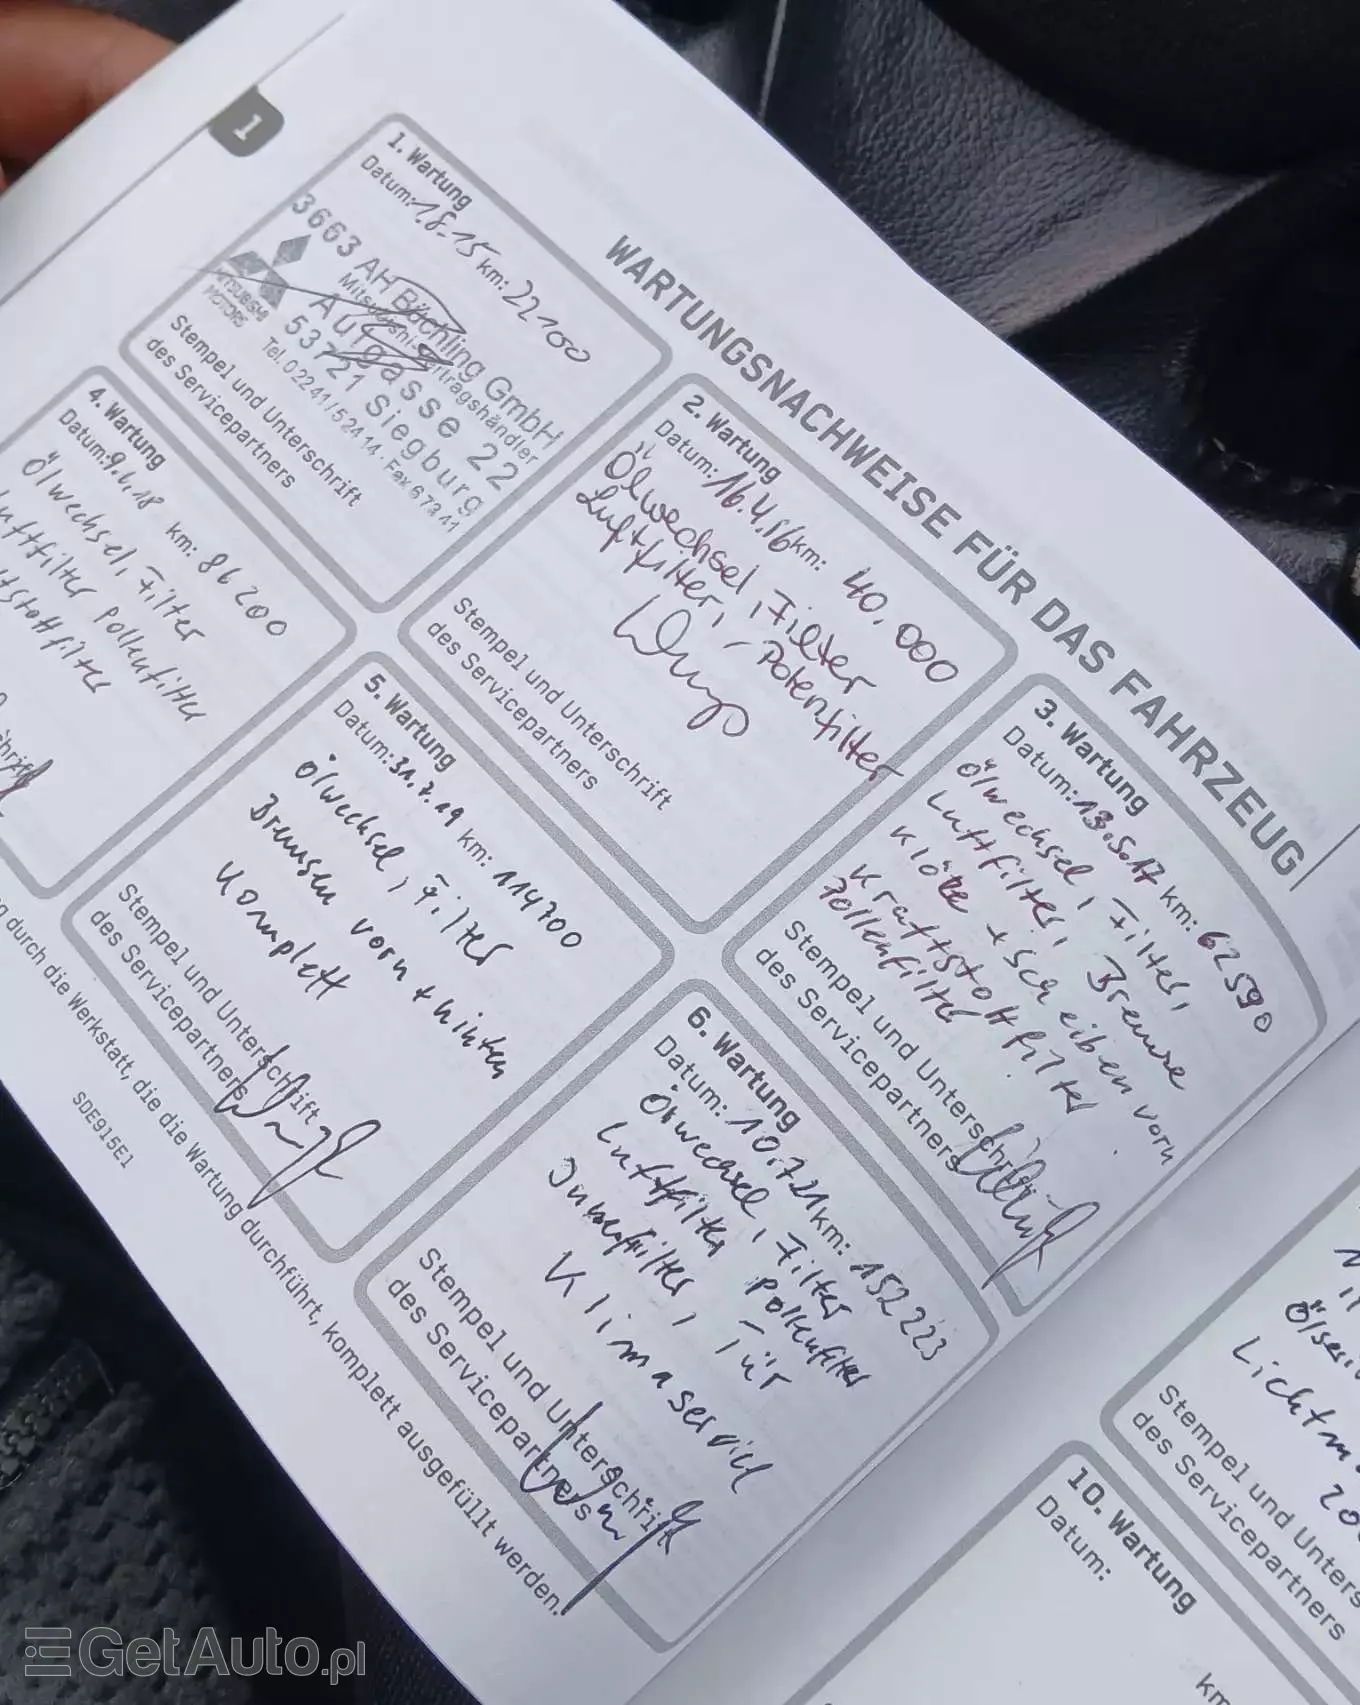 1
WARTUNGSNACHWEISE FÜR DAS FAHRZEUG
1. Wartung
Datum: 1.8.15 km: 22100
3663 AH Böchling GmbH
Mitsubishi-Vertragshändler
Augasse 22
53721 Siegburg
Tel. 02241/52414 · Fax 67341
MITSUBISHI
MOTORS
Stempel und Unterschrift
des Servicepartners
2. Wartung
Datum: 16.4.16 km: 40.000
Ölwechsel, Filter
Luftfilter, - Potenfilter
Stempel und Unterschrift
des Servicepartners
3. Wartung
Datum: 13.5.17 km: 62590
Ölwechsel, Filter,
Luftfilter, Bremse
Klötze + Scheiben vorn
Kraftstoffilter
Pollenfilter
Stempel und Unterschrift
des Servicepartners
4. Wartung
Datum: 9.6.18 km: 86200
Ölwechsel, Filter
Luftfilter Pollenfilter
5. Wartung
Datum: 31.7.19 km: 114700
Ölwechsel, Filter
Bremsen vorn + hinten
Komplett
Stempel und Unterschrift
des Servicepartners
6. Wartung
Datum: 10.7.21 km: 152223
Ölwechsel, Filter
Luftfilter Pollenfilter
Innenfilter, Tür
Klimaservice
Stempel und Unterschrift
des Servicepartners
durch die Werkstatt, die die Wartung durchführt, komplett ausgefüllt werden.
SDE915E1
Stempel und Unters
des Servicepartners
10. Wartung
Datum:
km
GetAuto.pl